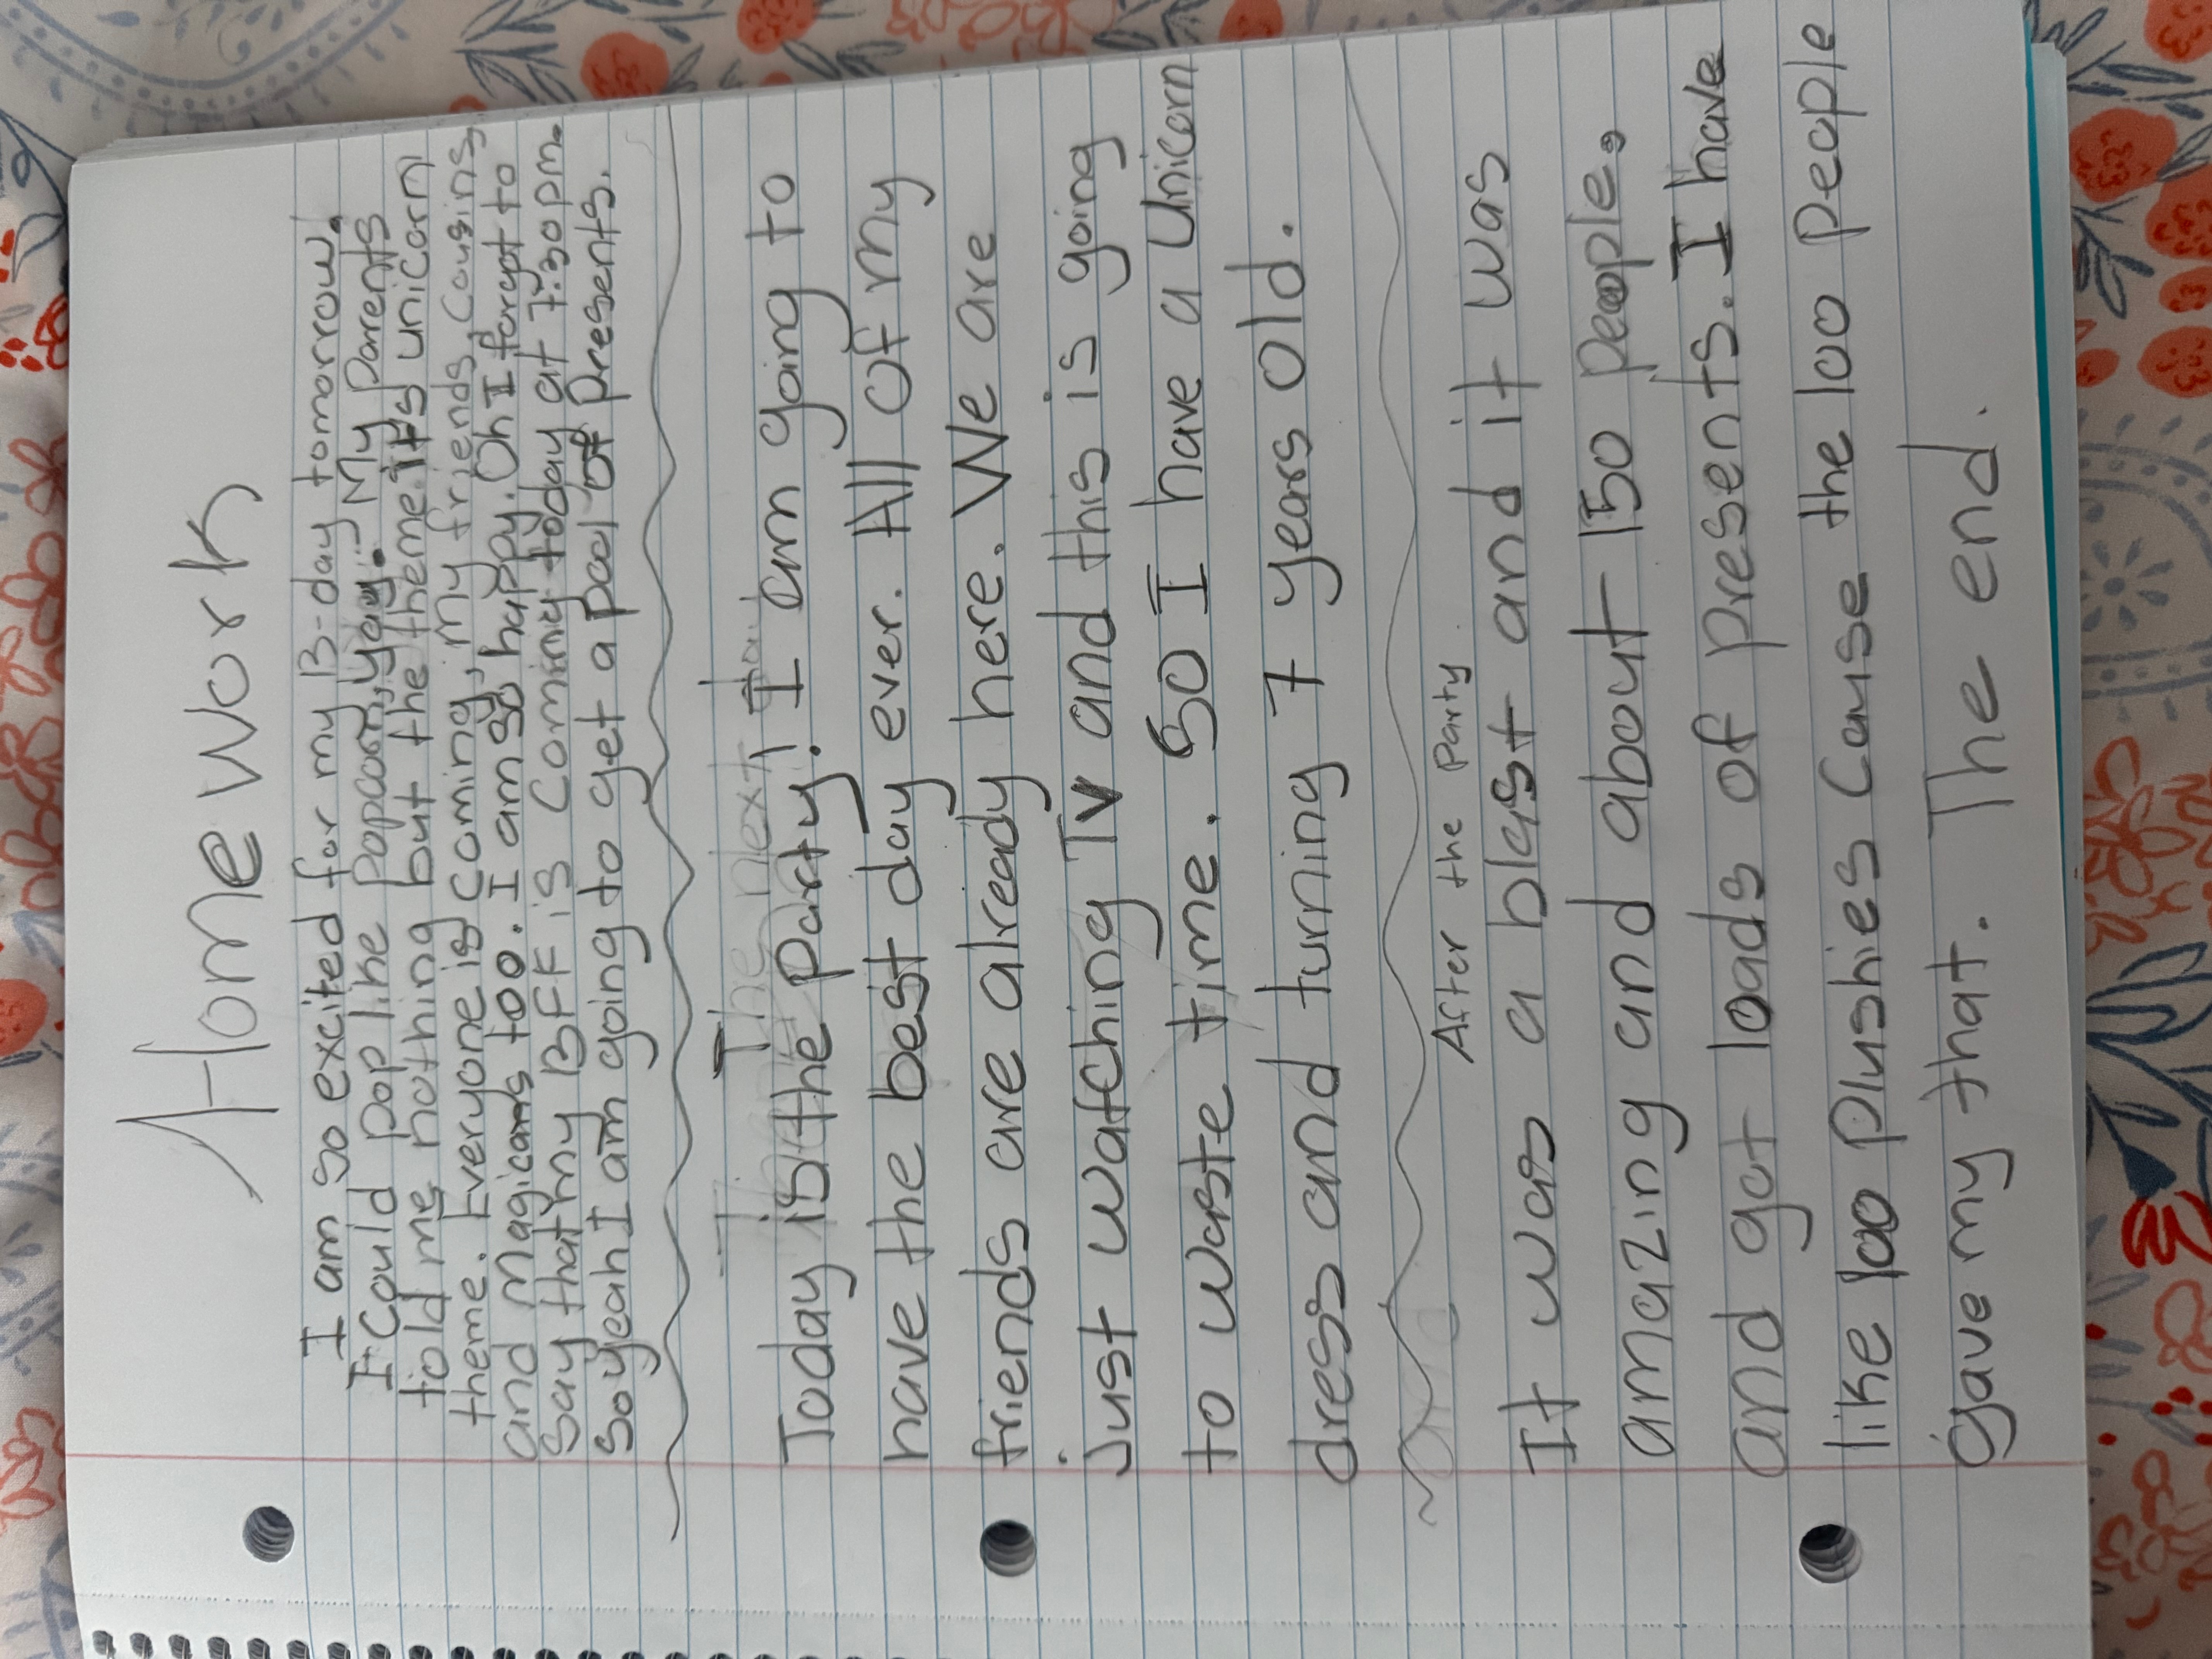 Home work
I am so excited for my B-day tomorrow.
I could pop like popcorn, yay. My parents
told me nothing but the theme it's unicorn
theme. Everyone is coming, my friends, cousins,
and Magicans too. I am so happy. Oh I forgot to
say that my BFF is coming today at 7:30pm.
So yeah I am going to get a pool of presents.
The next day
Today is the party! I am going to
have the best day ever. All of my
friends are already here. We are
just watching Tv and this is going
to waste time. So I have a unicorn
dress and turning 7 years old.
After the Party
It was a blast and it was
amazing and about 150 people.
and got loads of presents. I have
like 100 plushies cause the 100 people
gave my that. The end.